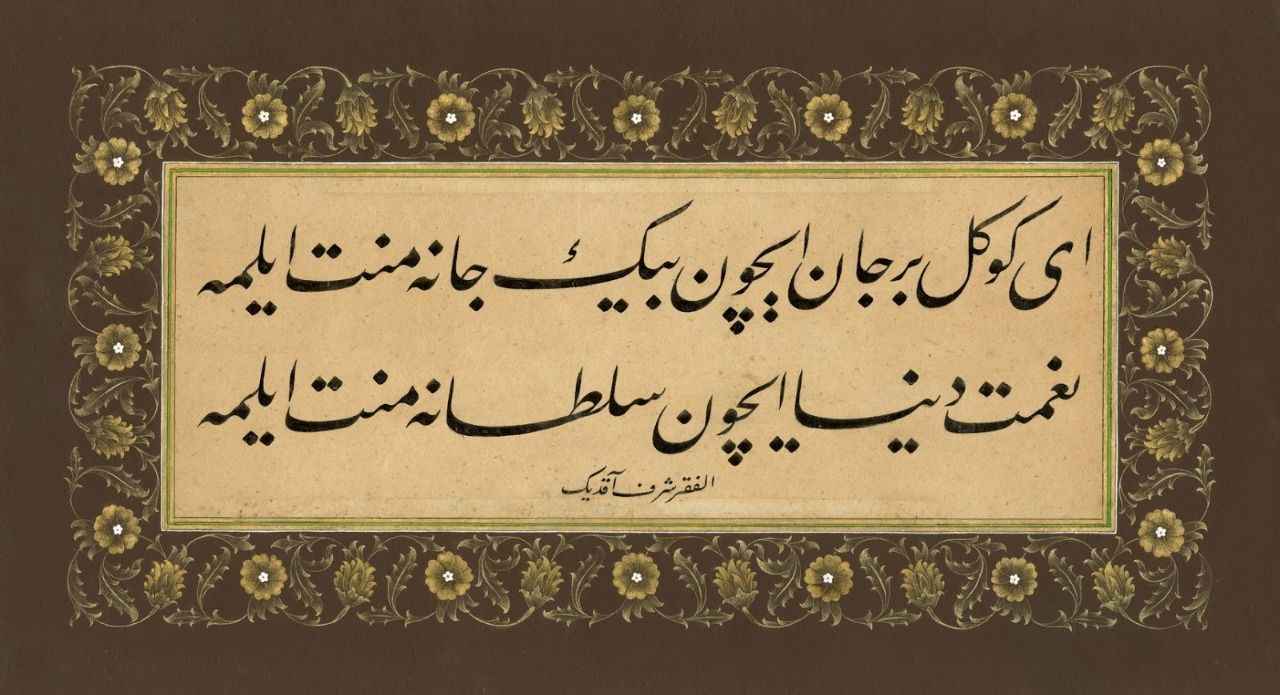 ای کوکل بر جان ایچون بیڭ جانه منت ایلمه
نعمت دنیا ایچون سلطانه منت ایلمه
الفقیر شرف آقدیک